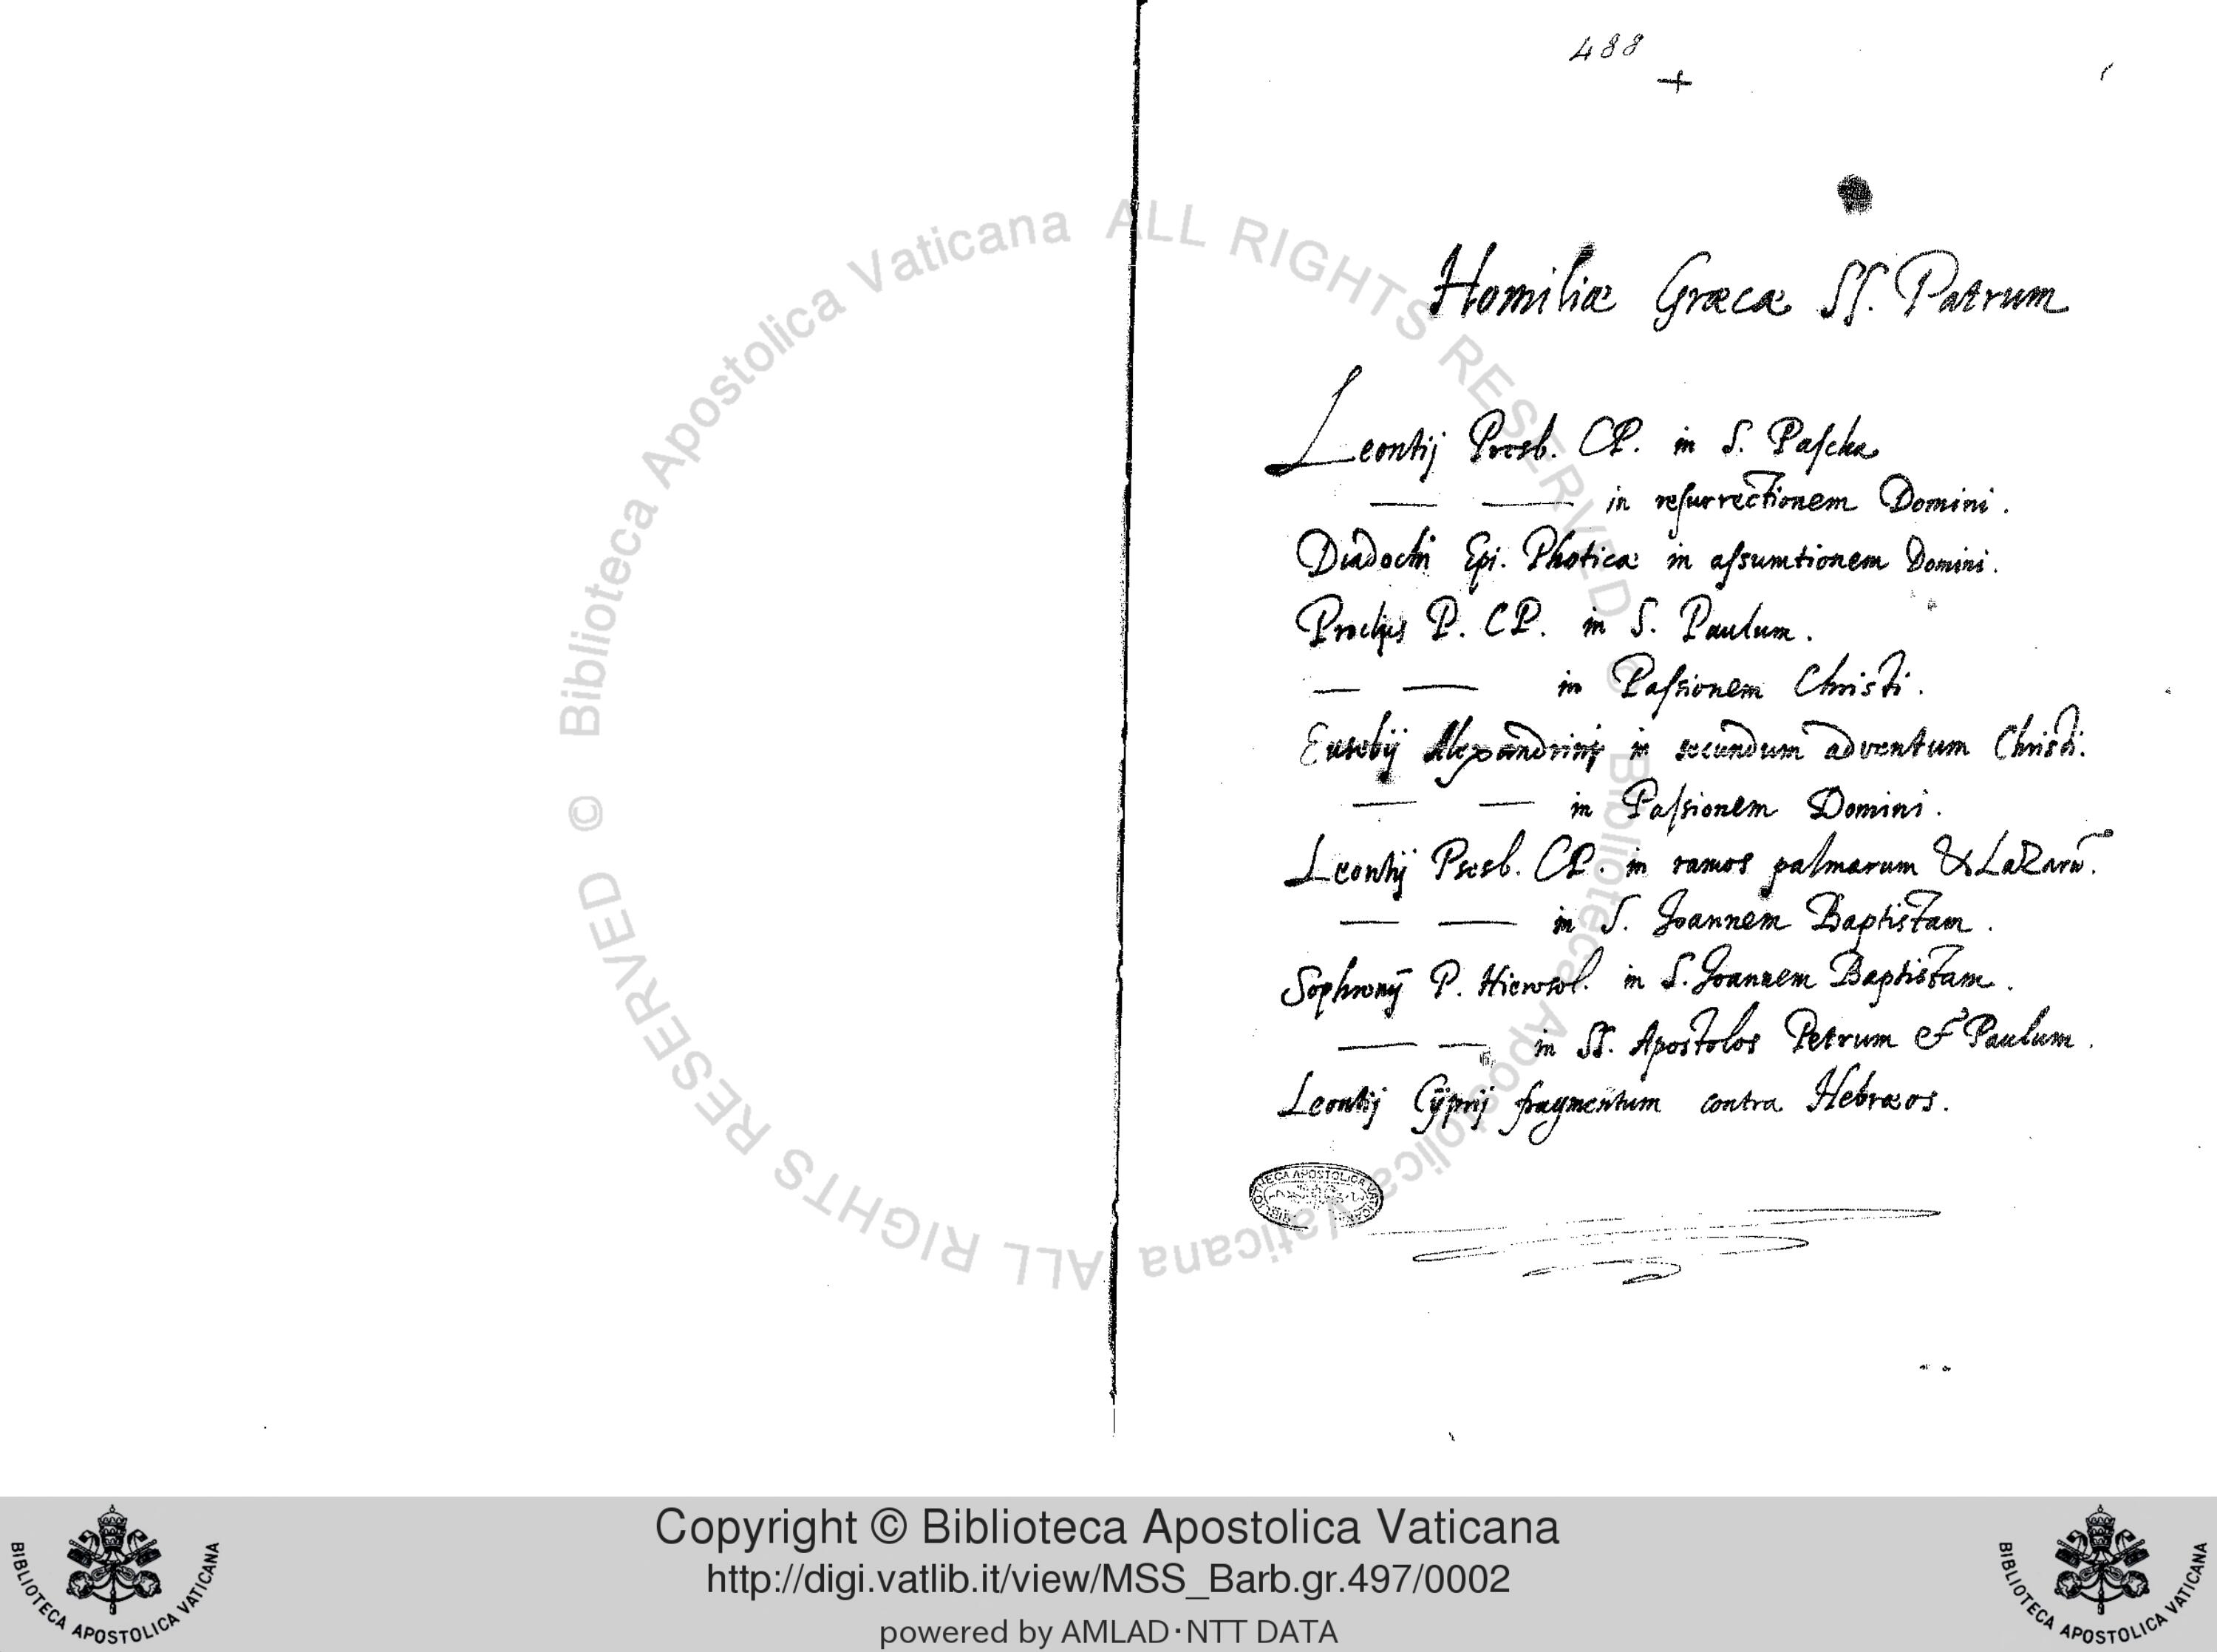 488
+
Homiliæ Græcæ SS. Patrum
Leontij Presb. CP. in S. Pascha
— — in resurrectionem Domini.
Diadochi Epi. Photicæ in assumtionem Domini.
P. CP. in S. Paulum.
— — in Passionem Christi.
Eusebij in secundum adventum Christi.
— — in Passionem Domini.
Leontij Presb. CP. in ramos palmarum & Lazarū.
— — in S. Joannem Baptistam.
Sophronij P. Hierosol. in S. Joannem Baptistam.
— — in SS. Apostolos Petrum & Paulum.
Leontij Cyprij fragmentum contra Hebræos.
BIBLIOTHECA APOSTOLICA VATICANA
© Biblioteca Apostolica Vaticana ALL RIGHTS RESERVED © Biblioteca Apostolica Vaticana ALL RIGHTS RESERVED
Copyright © Biblioteca Apostolica Vaticana
http://digi.vatlib.it/view/MSS_Barb.gr.497/0002
powered by AMLAD·NTT DATA
BIBLIOTECA APOSTOLICA VATICANA
BIBLIOTECA APOSTOLICA VATICANA